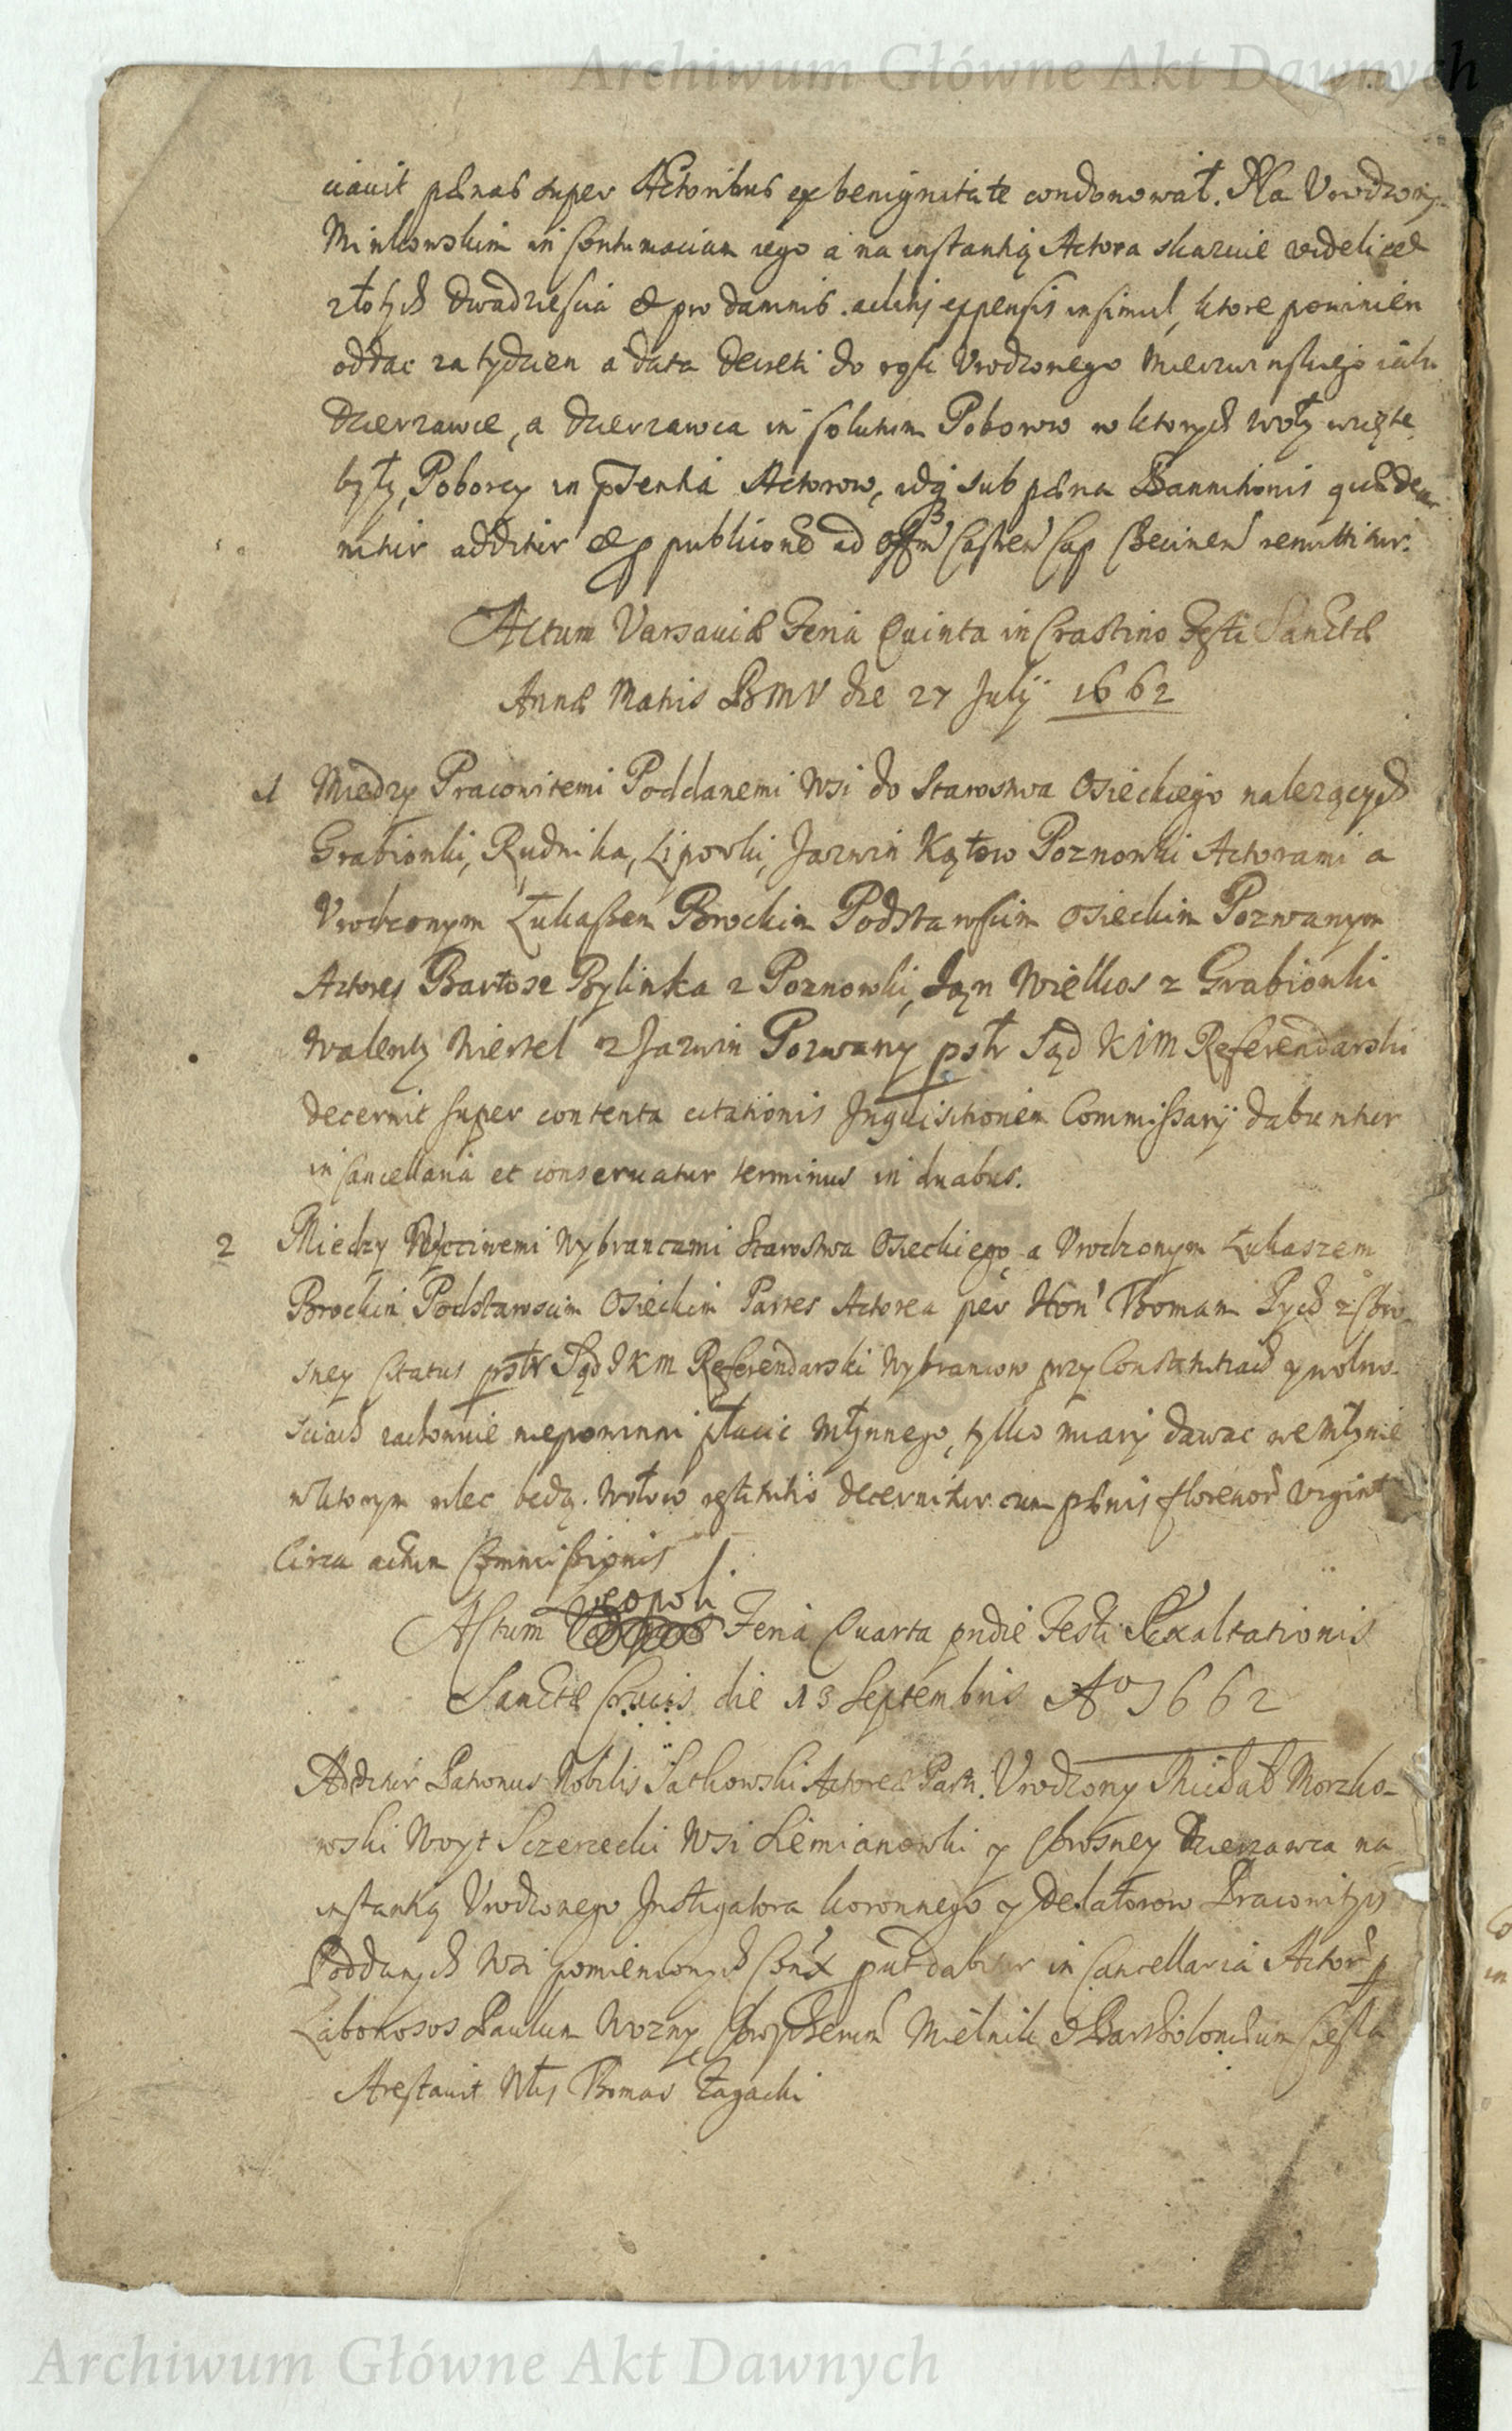 Archiwum Główne Akt Dawnych
uiauit pænas super Actoribus ex benignitate condonował. Na Vrodzony
Minkowskim in contumaciam iego a na instantią Actora skazuie videlicet
złotych dwadziescia et pro damnis expensis insimul, ktore powinien
oddac za tydzien a data decreti do rąk Vrodzonego iako
Dzierzawce, a Dzierzawca in solutum Poborow w ktorych woły wzięte
były, Poborcy in Actorow, idq sub pæna Bannitionis
nitur additur et p publicone ad offm Castren Cap remittitur.
Actum Varsauiæ Feria Quinta in Crastino Festi Sanctæ
Annæ Matris BMV die 27 Julij 1662
1 Miedzy Pracowitemi Poddanemi Wsi do Starostwa Osieckiego nalezących
Grabionki, Rudnika, Lipowki, Jazwin Kątow Poznowki Actorami a
Vrodzonym Łukaszem Brockim Podstarościm Osieckim Pozwanym
Actores Bartosz Bylinka z Poznowki, Jan Wielkos z Grabionki
Walenty z Jazwin Pozwany pstr Sąd KJM Referendarski
decernit super contenta citationis Jnquisitionem Commissarij dabuntur
in Cancellaria et conseruatur terminus in duabus.
2 Miedzy Wybrancami Starostwa Osieckiego, a Vrodzonym Łukaszem
Brockim Podstaroscim Osieckim Partes Actorea per Hon Thomam z Chro-
sney Citatus pstr Sąd JKM Referendarski Wybrancow przy Constitutiach y wolno-
sciach zachowuie niepowinni płacic młynnego, tylko miary dawac we młynie
w ktorym mlec będą. Wołow restitutio decernitur cum pænis florenor vigint
Circa actum Commissionis
Actum Leopoli Feria Quarta pridie Festi Exaltationis
Sanctæ Crucis die 13 Septembris Ao 1662
Additur Patronus Nobilis Satkowski Actoreæ Parti. Vrodzony Michał Morzko-
wski Woyt Sczerzecki Wsi Siemianowki y Chrosney Dzierzawca na
instantią Vrodzonego Jnstigatora koronnego y Delatorow Pracowitych
Poddanych Wsi pomienionych dabitur in Cancellaria Actor p
Laboriosos Paulum Wozny, Mielnik et Bartholomæum
Arestauit Nlis Thomas Łagacki
Archiwum Główne Akt Dawnych